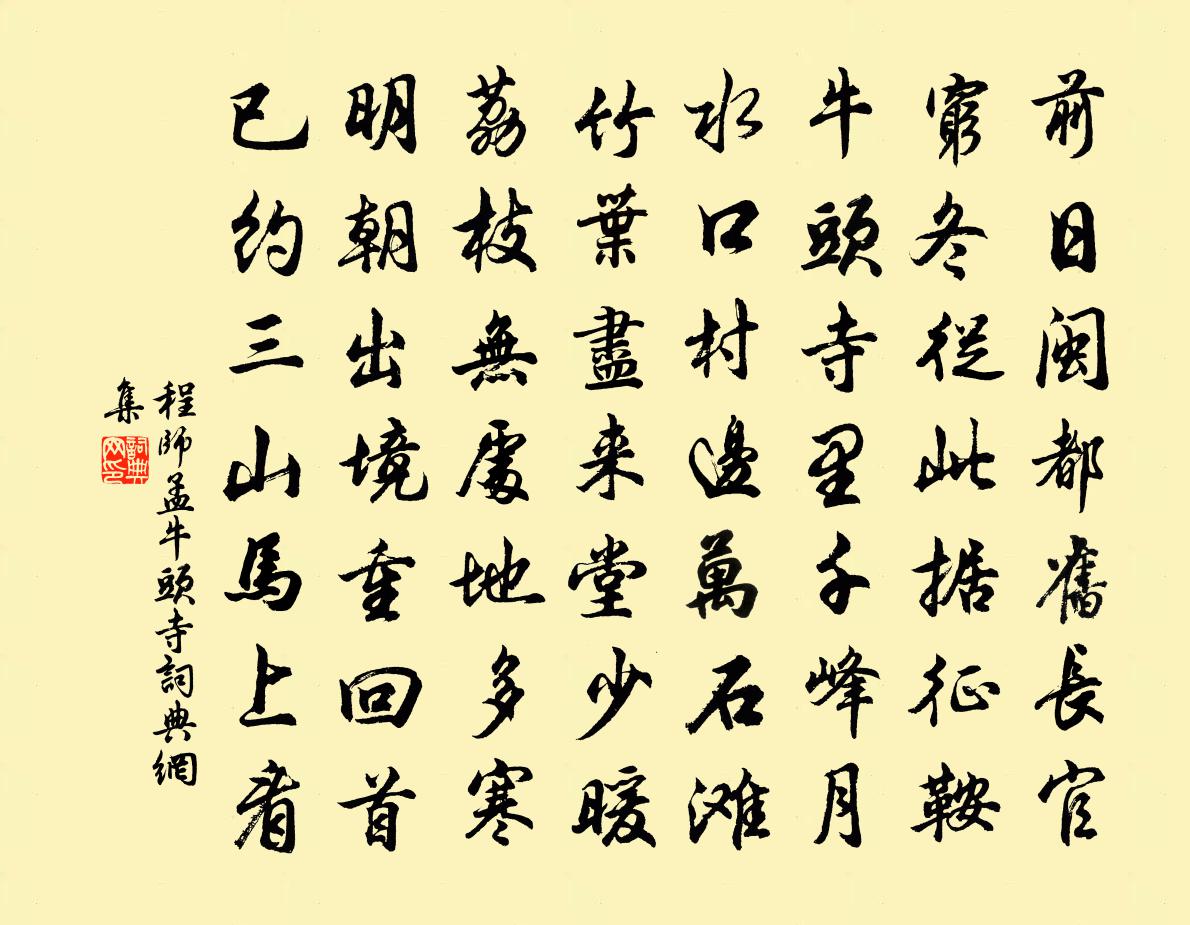 前日闽都舊長官
窮冬從此据征鞍
牛頭寺里千峰月
水口村邊萬石滩
竹葉盡来堂少暖
荔枝無處地多寒
明朝出境重回首
已约三山馬上看
程師孟牛頭寺詞典網
集
詞典網印